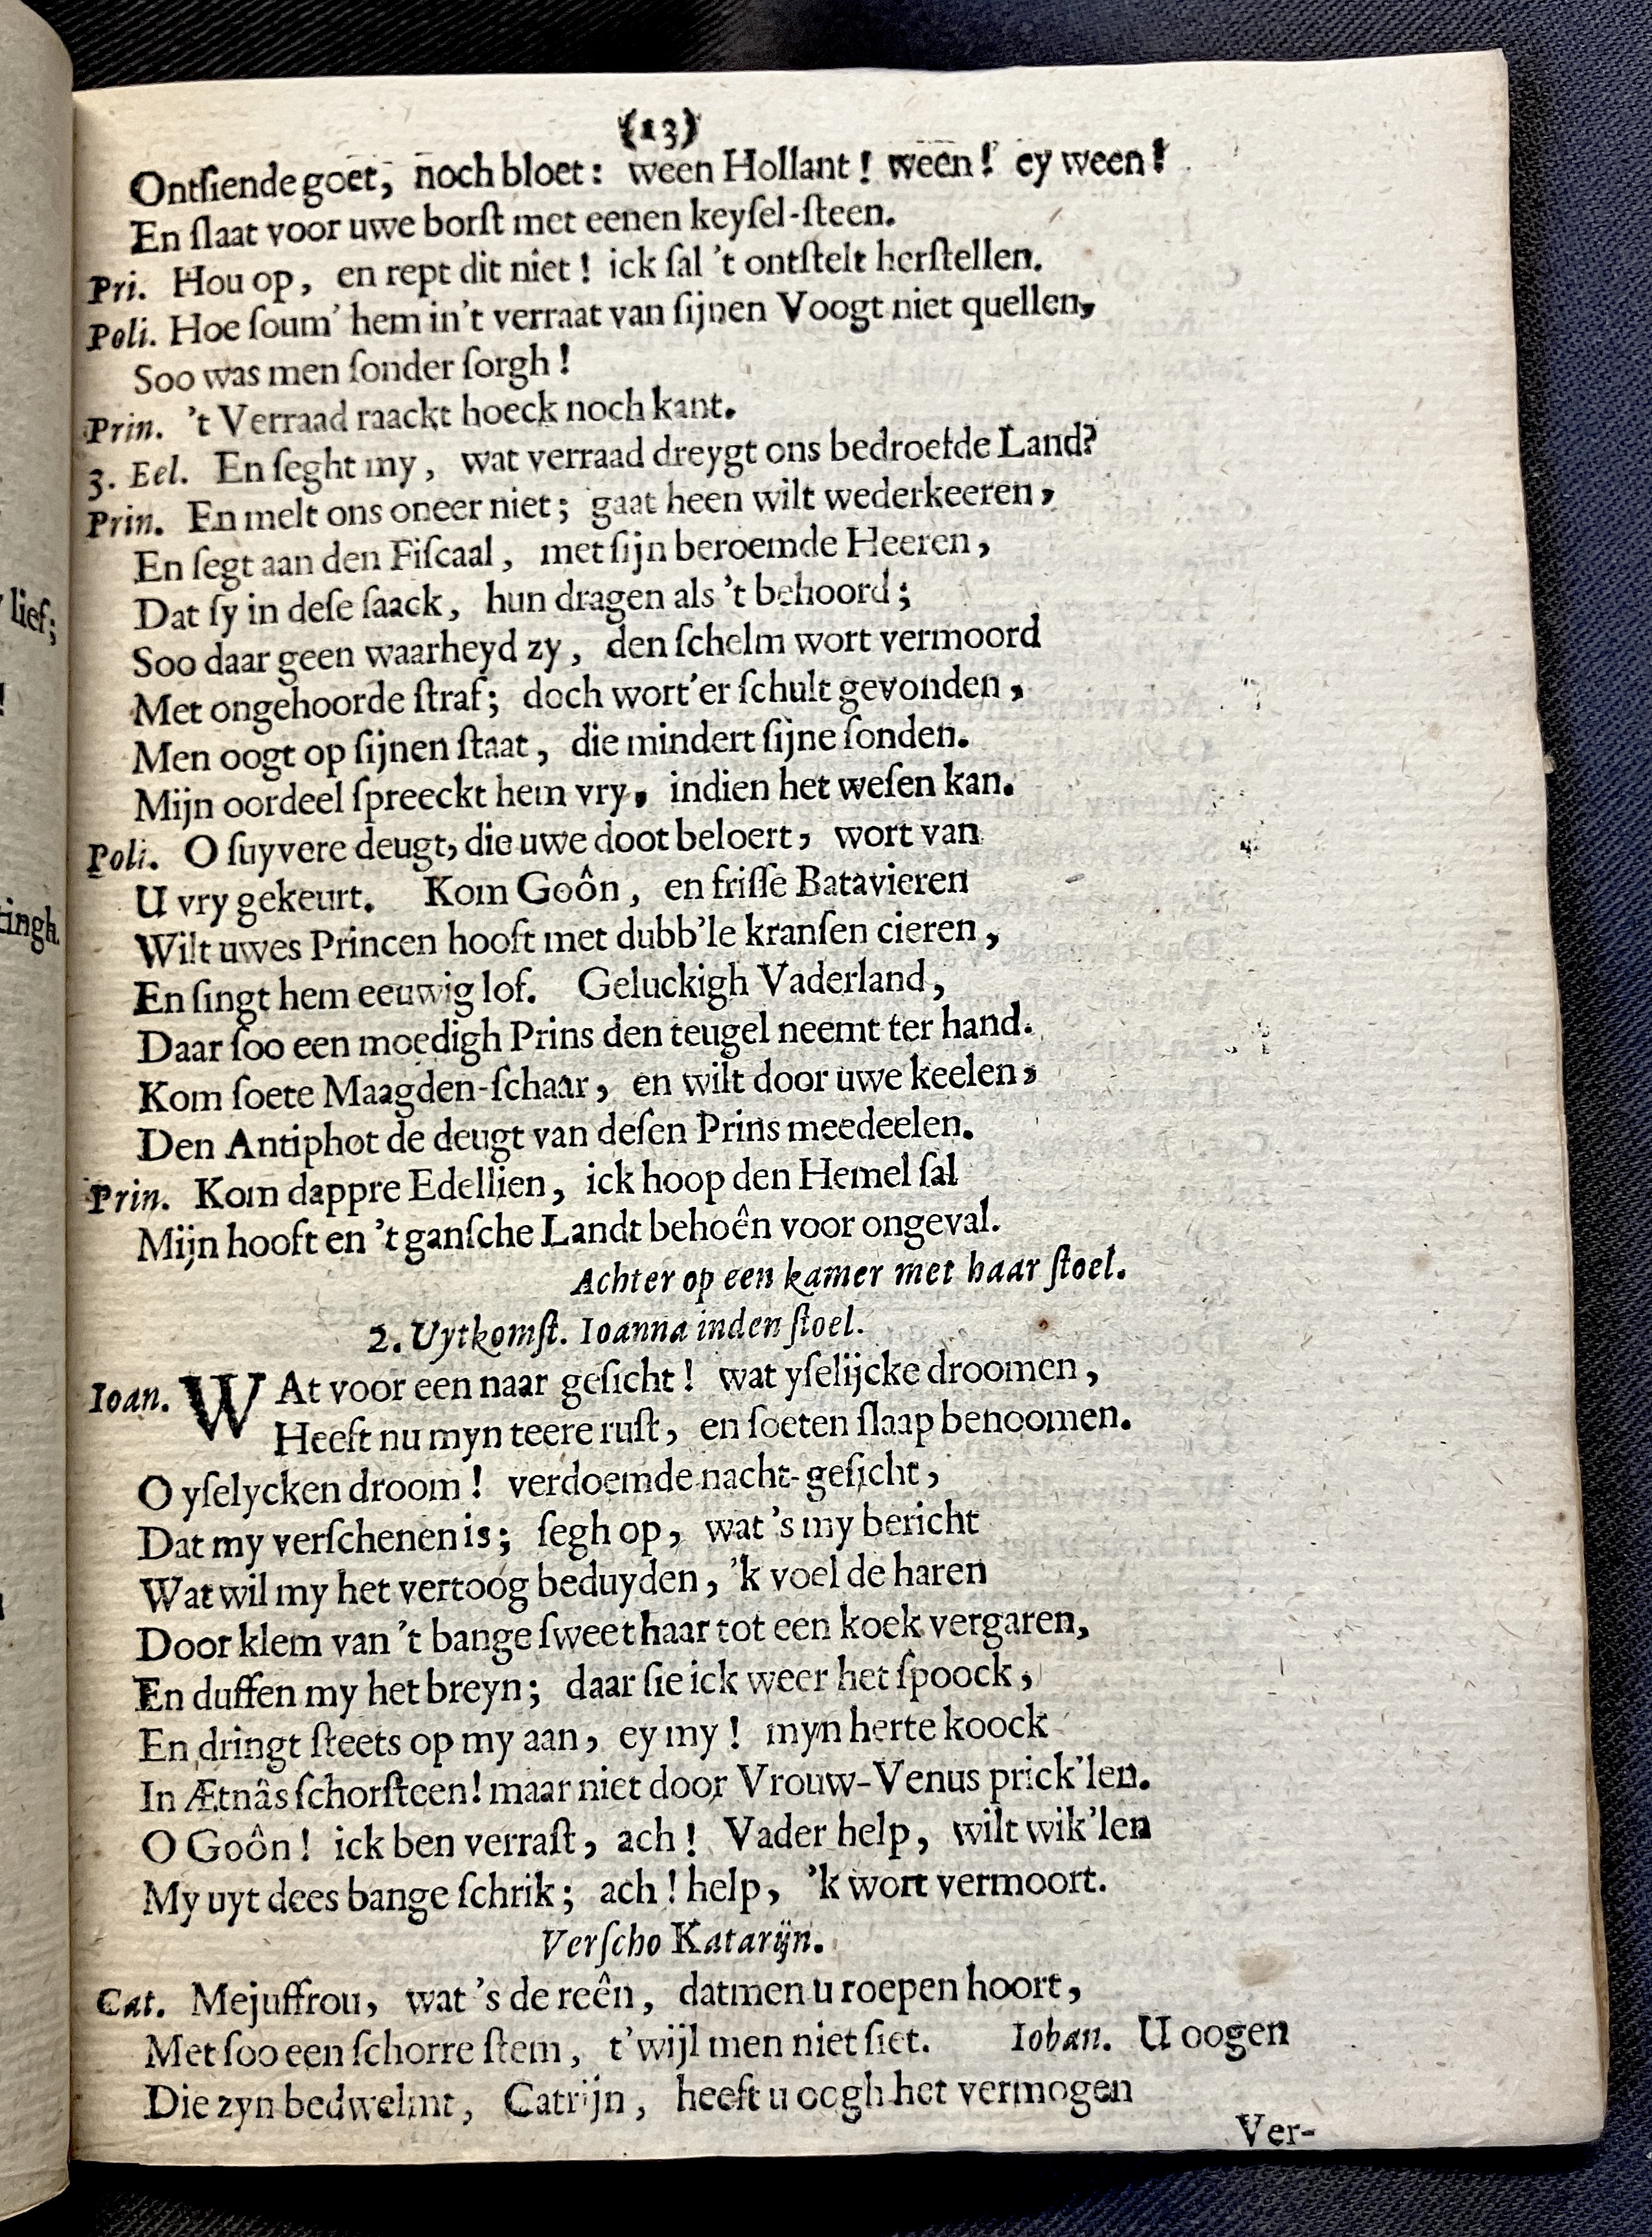 lief;
!
tingh.
(13)
Ontſiende goet, noch bloet: ween Hollant! ween! ey ween!
En ſlaat voor uwe borſt met eenen keyſel-ſteen.
Pri. Hou op, en rept dit niet! ick ſal 't ontſtelt herſtellen.
Poli. Hoe ſoum' hem in't verraat van ſijnen Voogt niet quellen,
Soo was men ſonder ſorgh!
Prin. 't Verraad raackt hoeck noch kant.
3. Eel. En ſeght my, wat verraad dreygt ons bedroefde Land?
Prin. En melt ons oneer niet; gaat heen wilt wederkeeren,
En ſegt aan den Fiſcaal, met ſijn beroemde Heeren,
Dat ſy in deſe ſaack, hun dragen als 't behoord;
Soo daar geen waarheyd zy, den ſchelm wort vermoord
Met ongehoorde ſtraf; doch wort'er ſchult gevonden,
Men oogt op ſijnen ſtaat, die mindert ſijne ſonden.
Mijn oordeel ſpreeckt hem vry, indien het weſen kan.
Poli. O ſuyvere deugt, die uwe doot beloert, wort van
U vry gekeurt. Kom Goôn, en friſſe Batavieren
Wilt uwes Princen hooft met dubb'le kranſen cieren,
En ſingt hem eeuwig lof. Geluckigh Vaderland,
Daar ſoo een moedigh Prins den teugel neemt ter hand.
Kom ſoete Maagden-ſchaar, en wilt door uwe keelen,
Den Antiphot de deugt van deſen Prins meedeelen.
Prin. Kom dappre Edellien, ick hoop den Hemel ſal
Mijn hooft en 't ganſche Landt behoên voor ongeval.
Achter op een kamer met haar ſtoel.
2. Uytkomſt. Ioanna inden ſtoel.
Ioan. WAt voor een naar geſicht! wat yſelijcke droomen,
Heeft nu myn teere ruſt, en ſoeten ſlaap benoomen.
O yſelycken droom! verdoemde nacht-geſicht,
Dat my verſchenen is; ſegh op, wat 's my bericht
Wat wil my het vertoog beduyden, 'k voel de haren
Door klem van 't bange ſweet haar tot een koek vergaren,
En duffen my het breyn; daar ſie ick weer het ſpoock,
En dringt ſteets op my aan, ey my! myn herte koock
In Ætnâs ſchorſteen! maar niet door Vrouw-Venus prick'len.
O Goôn! ick ben verraſt, ach! Vader help, wilt wik'len
My uyt dees bange ſchrik; ach! help, 'k wort vermoort.
Verſcho Katarijn.
Cat. Mejuffrou, wat 's de reên, datmen u roepen hoort,
Met ſoo een ſchorre ſtem, t'wijl men niet ſiet. Iohan. U oogen
Die zyn bedwelmt, Catrijn, heeft u oogh het vermogen
Ver-